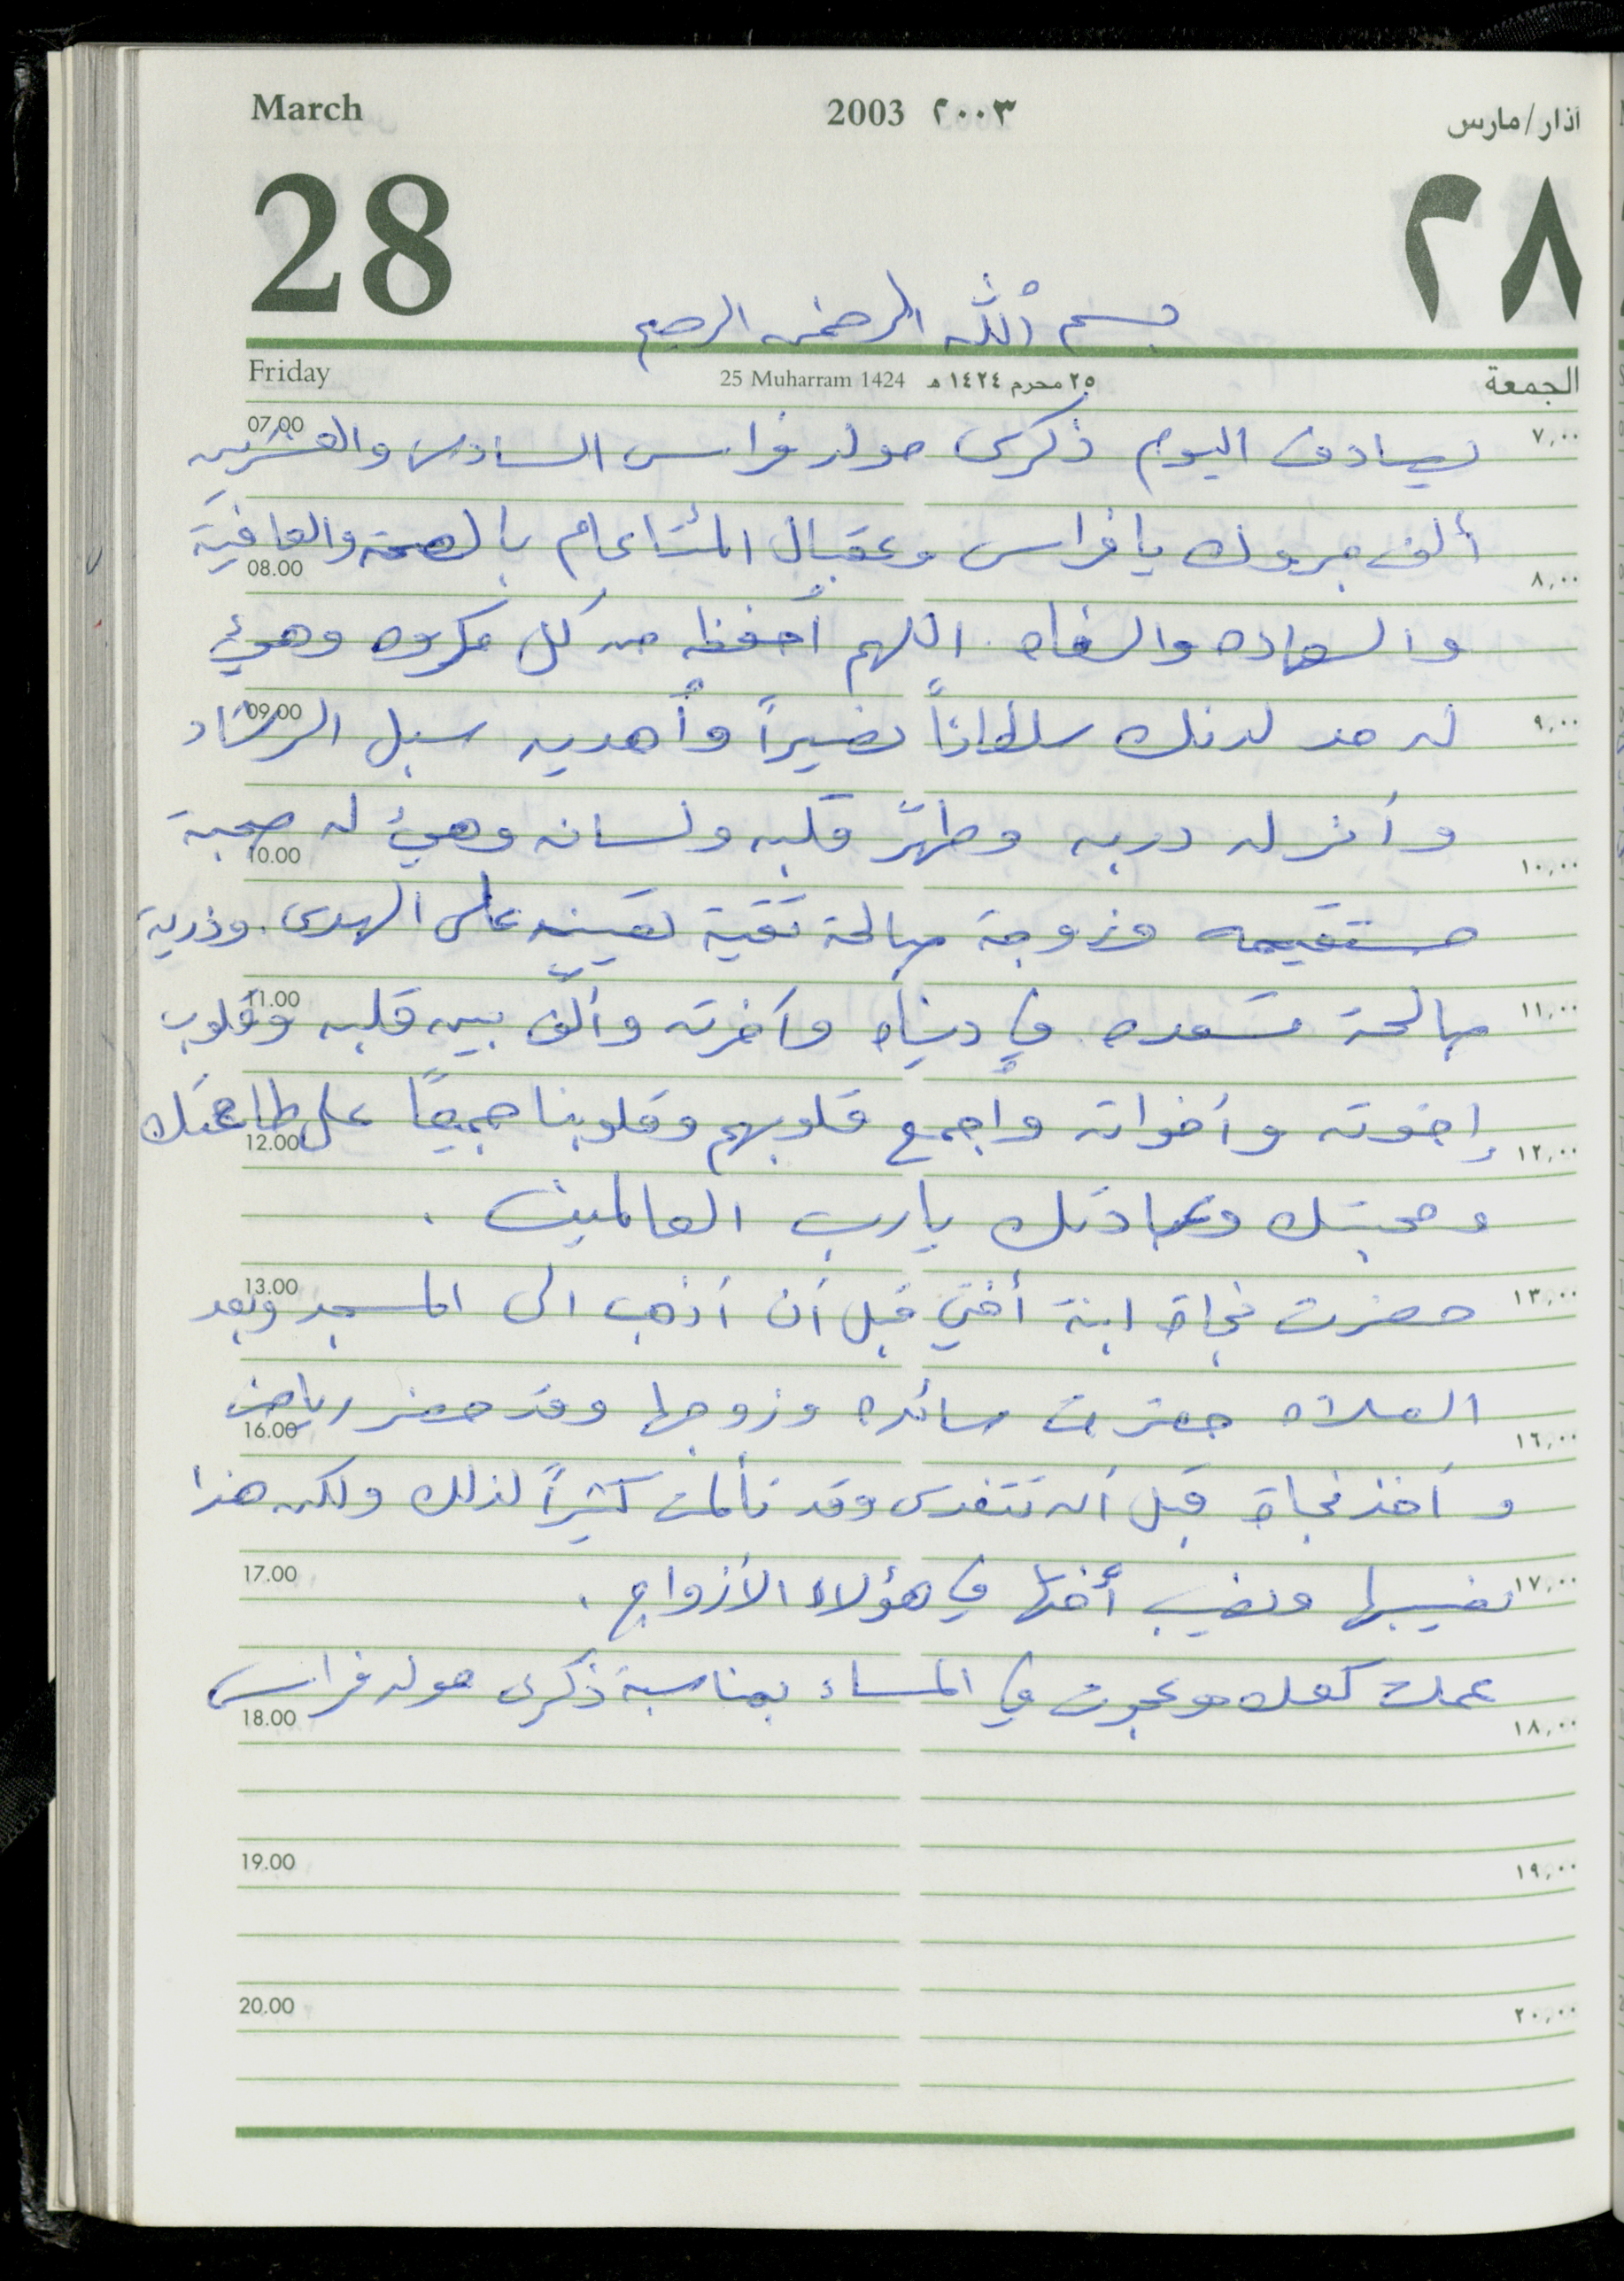 March 2003 ٢٠٠٣ آذار/مارس
28 ٢٨
بسم ٱللّٰه الرحمن الرحيم
Friday 25 Muharram 1424 ٢٥ محرم ١٤٢٤ هـ الجمعة
07.00 ٧,٠٠
يصادف اليوم ذكرى مولد فراس السادس والعشرين
ألف مبروك يا فراس وعقبال المئتا عام بالصحة والعافية
08.00 ٨,٠٠
والسعاده والرفاه. اللهم أحفظه من كل مكروه وهيئ
09.00 ٩,٠٠
له من لدنك سلطاناً نصيراً وأهديه سبل الرشاد
وأنر له دربه وطهّر قلبه ولسانه وهيئ له صحبة
10.00 ١٠,٠٠
مستقيمه وزوجة صالحة تقية تعينه على الهدى. وذرية
11.00 ١١,٠٠
صالحة تسعده في دنياه وآخرته وألّف بين قلبه وقلوب
إخوته وأخواته واجمع قلوبهم وقلوبنا جميعاً على طاعتك
12.00 ١٢,٠٠
ومحبتك وعبادتك يارب العالمين .
13.00 ١٣,٠٠
حضرت نجاة ابنة أختي قبل أن أذهب الى المسجد وبعد
الصلاه حضرت سائده وزوجها وقد حضر رياض
16.00 ١٦,٠٠
وأخذ نجاة قبل أن تتغدى وقد تألمت كثيراً لذلك ولكن هذا
17.00 ١٧,٠٠
نصيبها ونصيب أختها في هؤلاء الأزواج .
عملت كعك وعجوت في المساء بمناسبة ذكرى مولد فراس
18.00 ١٨,٠٠
19.00 ١٩,٠٠
20.00 ٢٠,٠٠